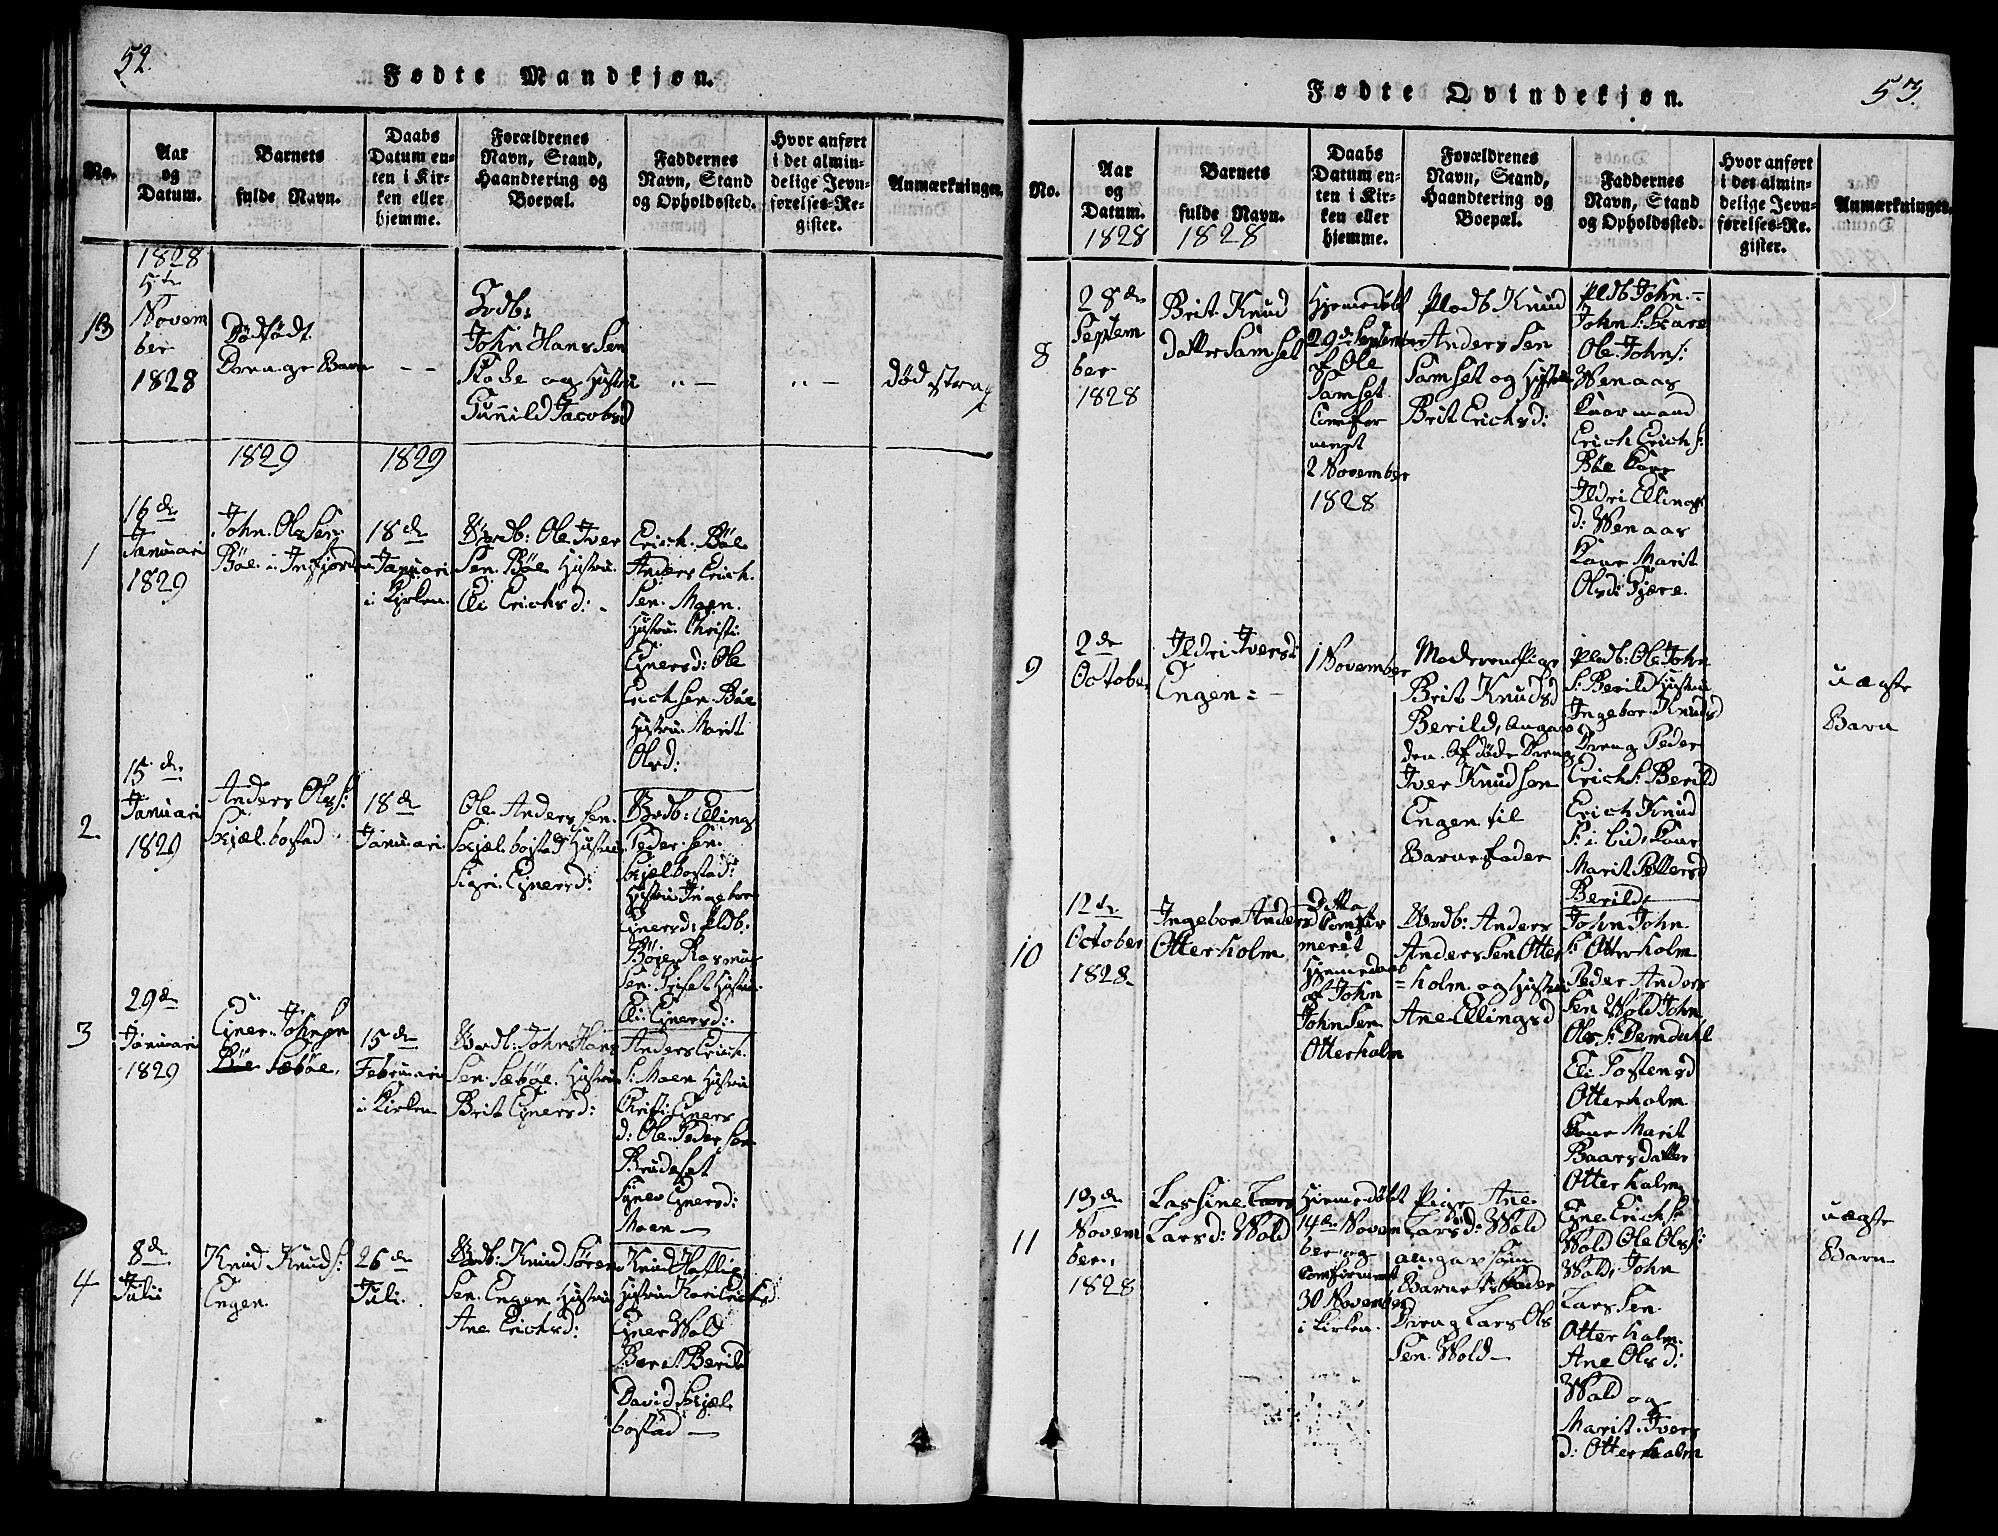 52.
Fødte Mandkjøn.
No.
Aar
og
Datum.
Barnets
fulde Navn.
Daabs
Datum en-
ten i Kir-
ken eller
hjemme.
Forældrenes
Navn, Stand,
Haandtering og
Boepæl.
Faddernes
Navn, Stand
og Opholdssted.
Hvor anført
i det almin-
delige Jevn-
førelses-Re-
gister.
Anmærkninger.
13
1828
5te
Novem
ber
1828
Dødfødt
Drenge Barn
John Hans Sen
og Hustru
Gunild Jacobsd
1829
1829
1
16de
Januari
1829
John Ols Sen
Bøe i Insfjord
18de
Januari
i Kirken
Ole Iver
Sen Bøe Hustru
Eli Erichsd:
Erich Bøe
Anders Erich
Sen Moen
Hustru Christi
Einersd: Ole
Erichsen Bøe
Hustru Marit
Olsd:
2.
15de
Januari
1829
Anders Ols S:
Skjælbostad
18de
Januari
Ole Anders Sen
Skjælbostad Hustru
Sigri Einersd:
Ellings
Peder Sen
Skjælbostad:
Hustru Ingebor
Einersd: Pldb:
Børe Rasmus
Sen Hustru
Eli Einersd:
3
29de
Januari
1829
Einer Johnsen
Bøe Sæbøe.
15de
Februari
i Kirken
John Hans
Sen Sæbøe. Hustru
Brit Einersd:
Anders Erich
S: Moen Hustru
Christi Einers
d: Ole Peder Sen
Synev Einersd:
Moen
4
8de
Julii
Knud Knud S:
Engen
26de
Juli.
Knud Søren
Sen Engen Hustru
Ane Erichsd:
Knud
Hustru Kari Erichsd
Einer Wold
Berit Berild
David Skjæl
bostad
Fødte Qvindekjøn.
53.
No.
Aar
og
Datum.
1828
Barnets
fulde Navn.
1828
Daabs
Datum en-
ten i Kir-
ken eller
hjemme.
Forældrenes
Navn, Stand,
Haandtering og
Boepæl.
Faddernes
Navn, Stand
og Opholdssted.
Hvor anført
i det almin-
delige Jevn-
førelses-Re-
gister.
Anmærkninger.
8
28de
Septem
ber
1828
Brit Knud
datter Samset
Hjemedøbt
29de September
af Ole
Samset
Comfor
meret
2 November
1828
Pladb Knud
Anders Sen
Samset og Hustru
Brit Erichsd:
Pldb John
John S: Skare
Ole Johns:
Wenaas
Erich Erich S:
Bøe Kone
Ildri Ellings
d: Wenaas
Kone Marit
Olsd:
9
2de
October
Ildri Iversd
Engen
1 November
Moderen Pige
Brit Knudsd
Berild, angav
den afdøde Dreng
Iver Knudsen
Engen til
Barnefader
Pladb: Ole John
S: Berild Hustru
Ingebor Knudsd
Dreng Peder
Erich S: Berild
Erich Knud
S: i Lid, Kone
Marit Pettersd
Berild
uægte
Barn
10
12te
October
1828
Ingebor Andersd
Otterholm
Ditto
Comfor
meret
Hjemedøbt
af John
Johnsen
Otterholm
Anders
Anders Sen Otter
holm og Hustru
Ane Ellingsd
John John
S: Otterholm
Peder Anders
Sen Wold John
Ols S: Demdahl
Eli Tostensd
Otterholm
Kone Marit
Baarsdatter
Otterholm
11
19de
Novem
ber
1828
Lassine Lars
Larsd: Wold
Hjemedøbt
14de Novem
ber og
Comfirmeret
30 November
i Kirken
Pige Ane
Larsd: Wold
angav som
Barnets Fader
Dreng Lars Ols
Sen Wold
Eine Erich S:
Wold Ole Ols S:
Wold, John
Lars Sen
Otterholm
Ane Olsd:
Wold og
Marit Ivers
d: Otterholm
uægte
Barn